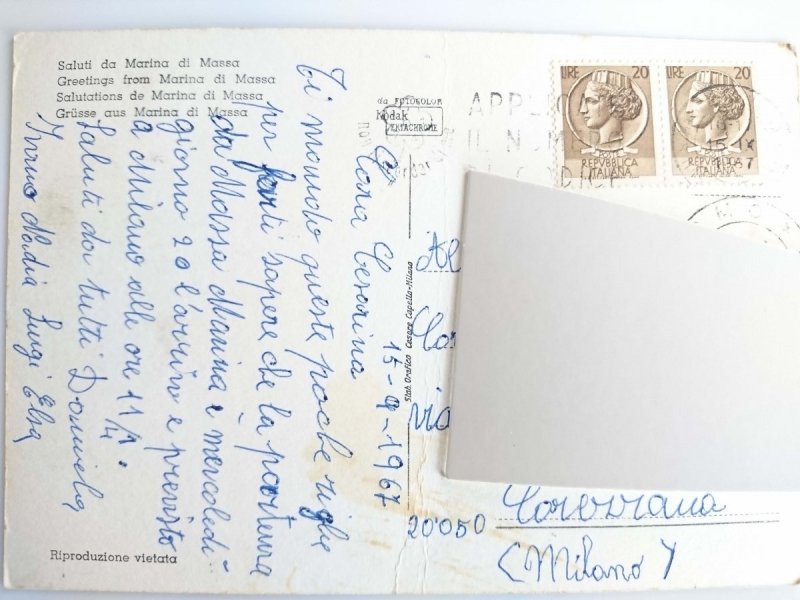 Saluti da Marina di Massa
Greetings from Marina di Massa
Salutations de Marina di Massa
Grüsse aus Marina di Massa
da FOTOKOLOR
Kodak
EKTACHROME
15-9-1967
Cara Cesarina
Ti mando queste poche righe
per farti sapere che la partenza
da Massa Marina è mercoledi
giorno 20 l'arrivo è previsto
a Milano alle ore 11/4
Saluti da tutti Daniela
Bruno Nadia Luigi Elsa
Riproduzione vietata
Stab. Grafico Cesare Capello-Milano
LIRE 20
REPVBBLICA
ITALIANA
LIRE 20
REPVBBLICA
ITALIANA
IL NUM
via
20050
(Milano)